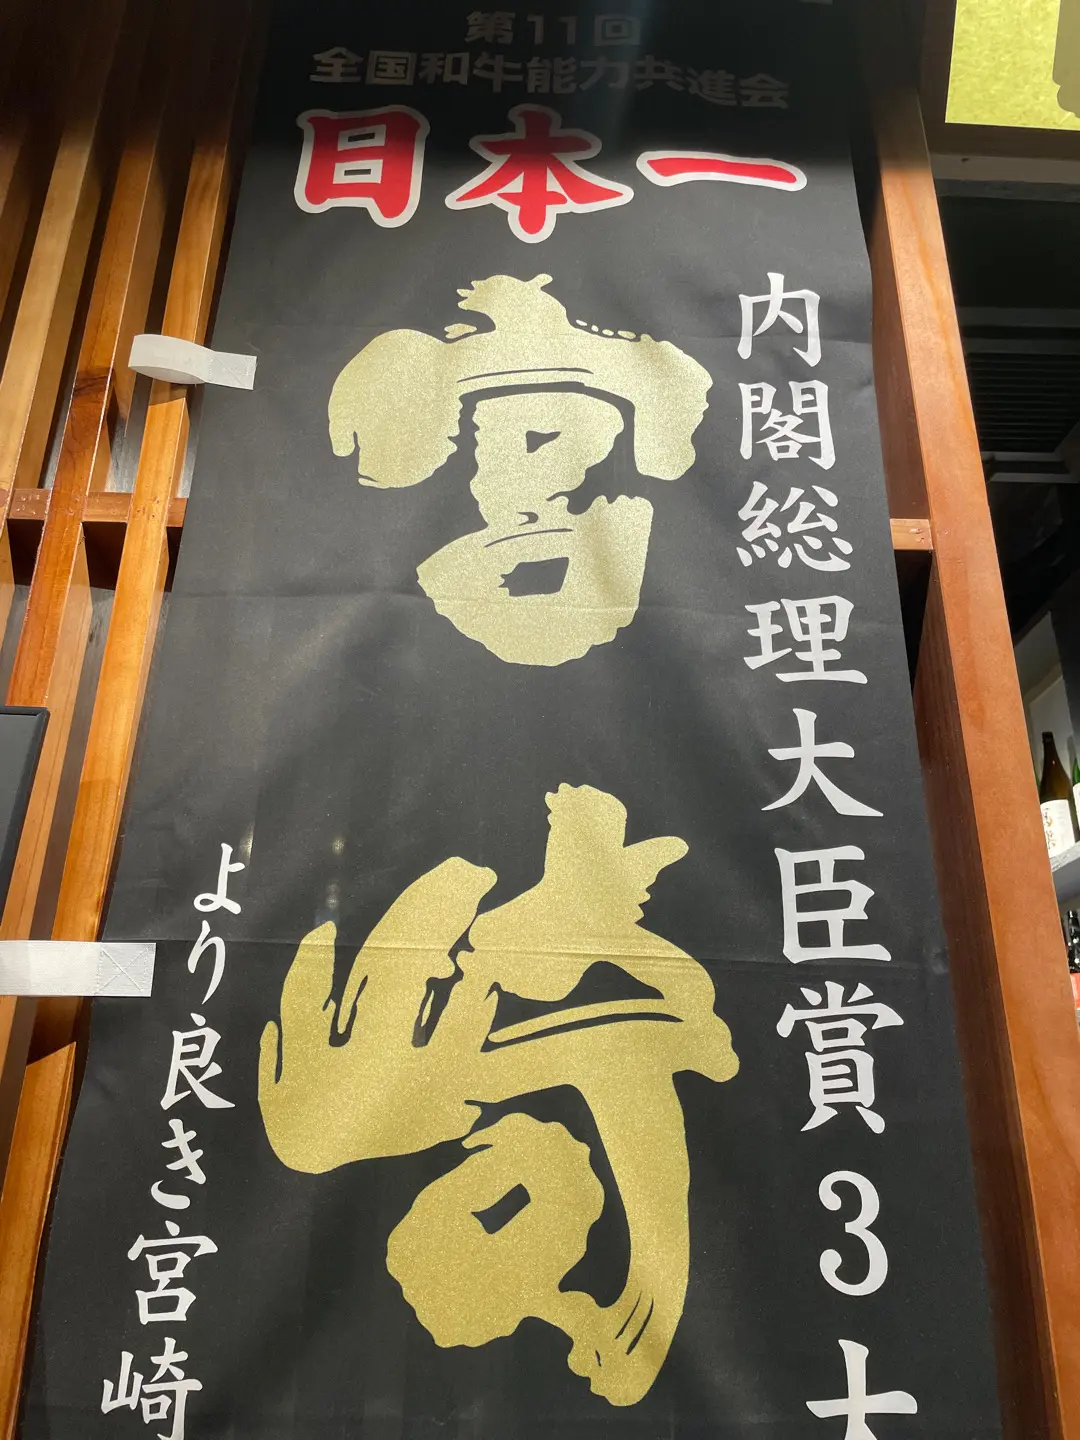 第11回
全国和牛能力共進会
日本一
内閣総理大臣賞3大
宮崎
より良き宮崎